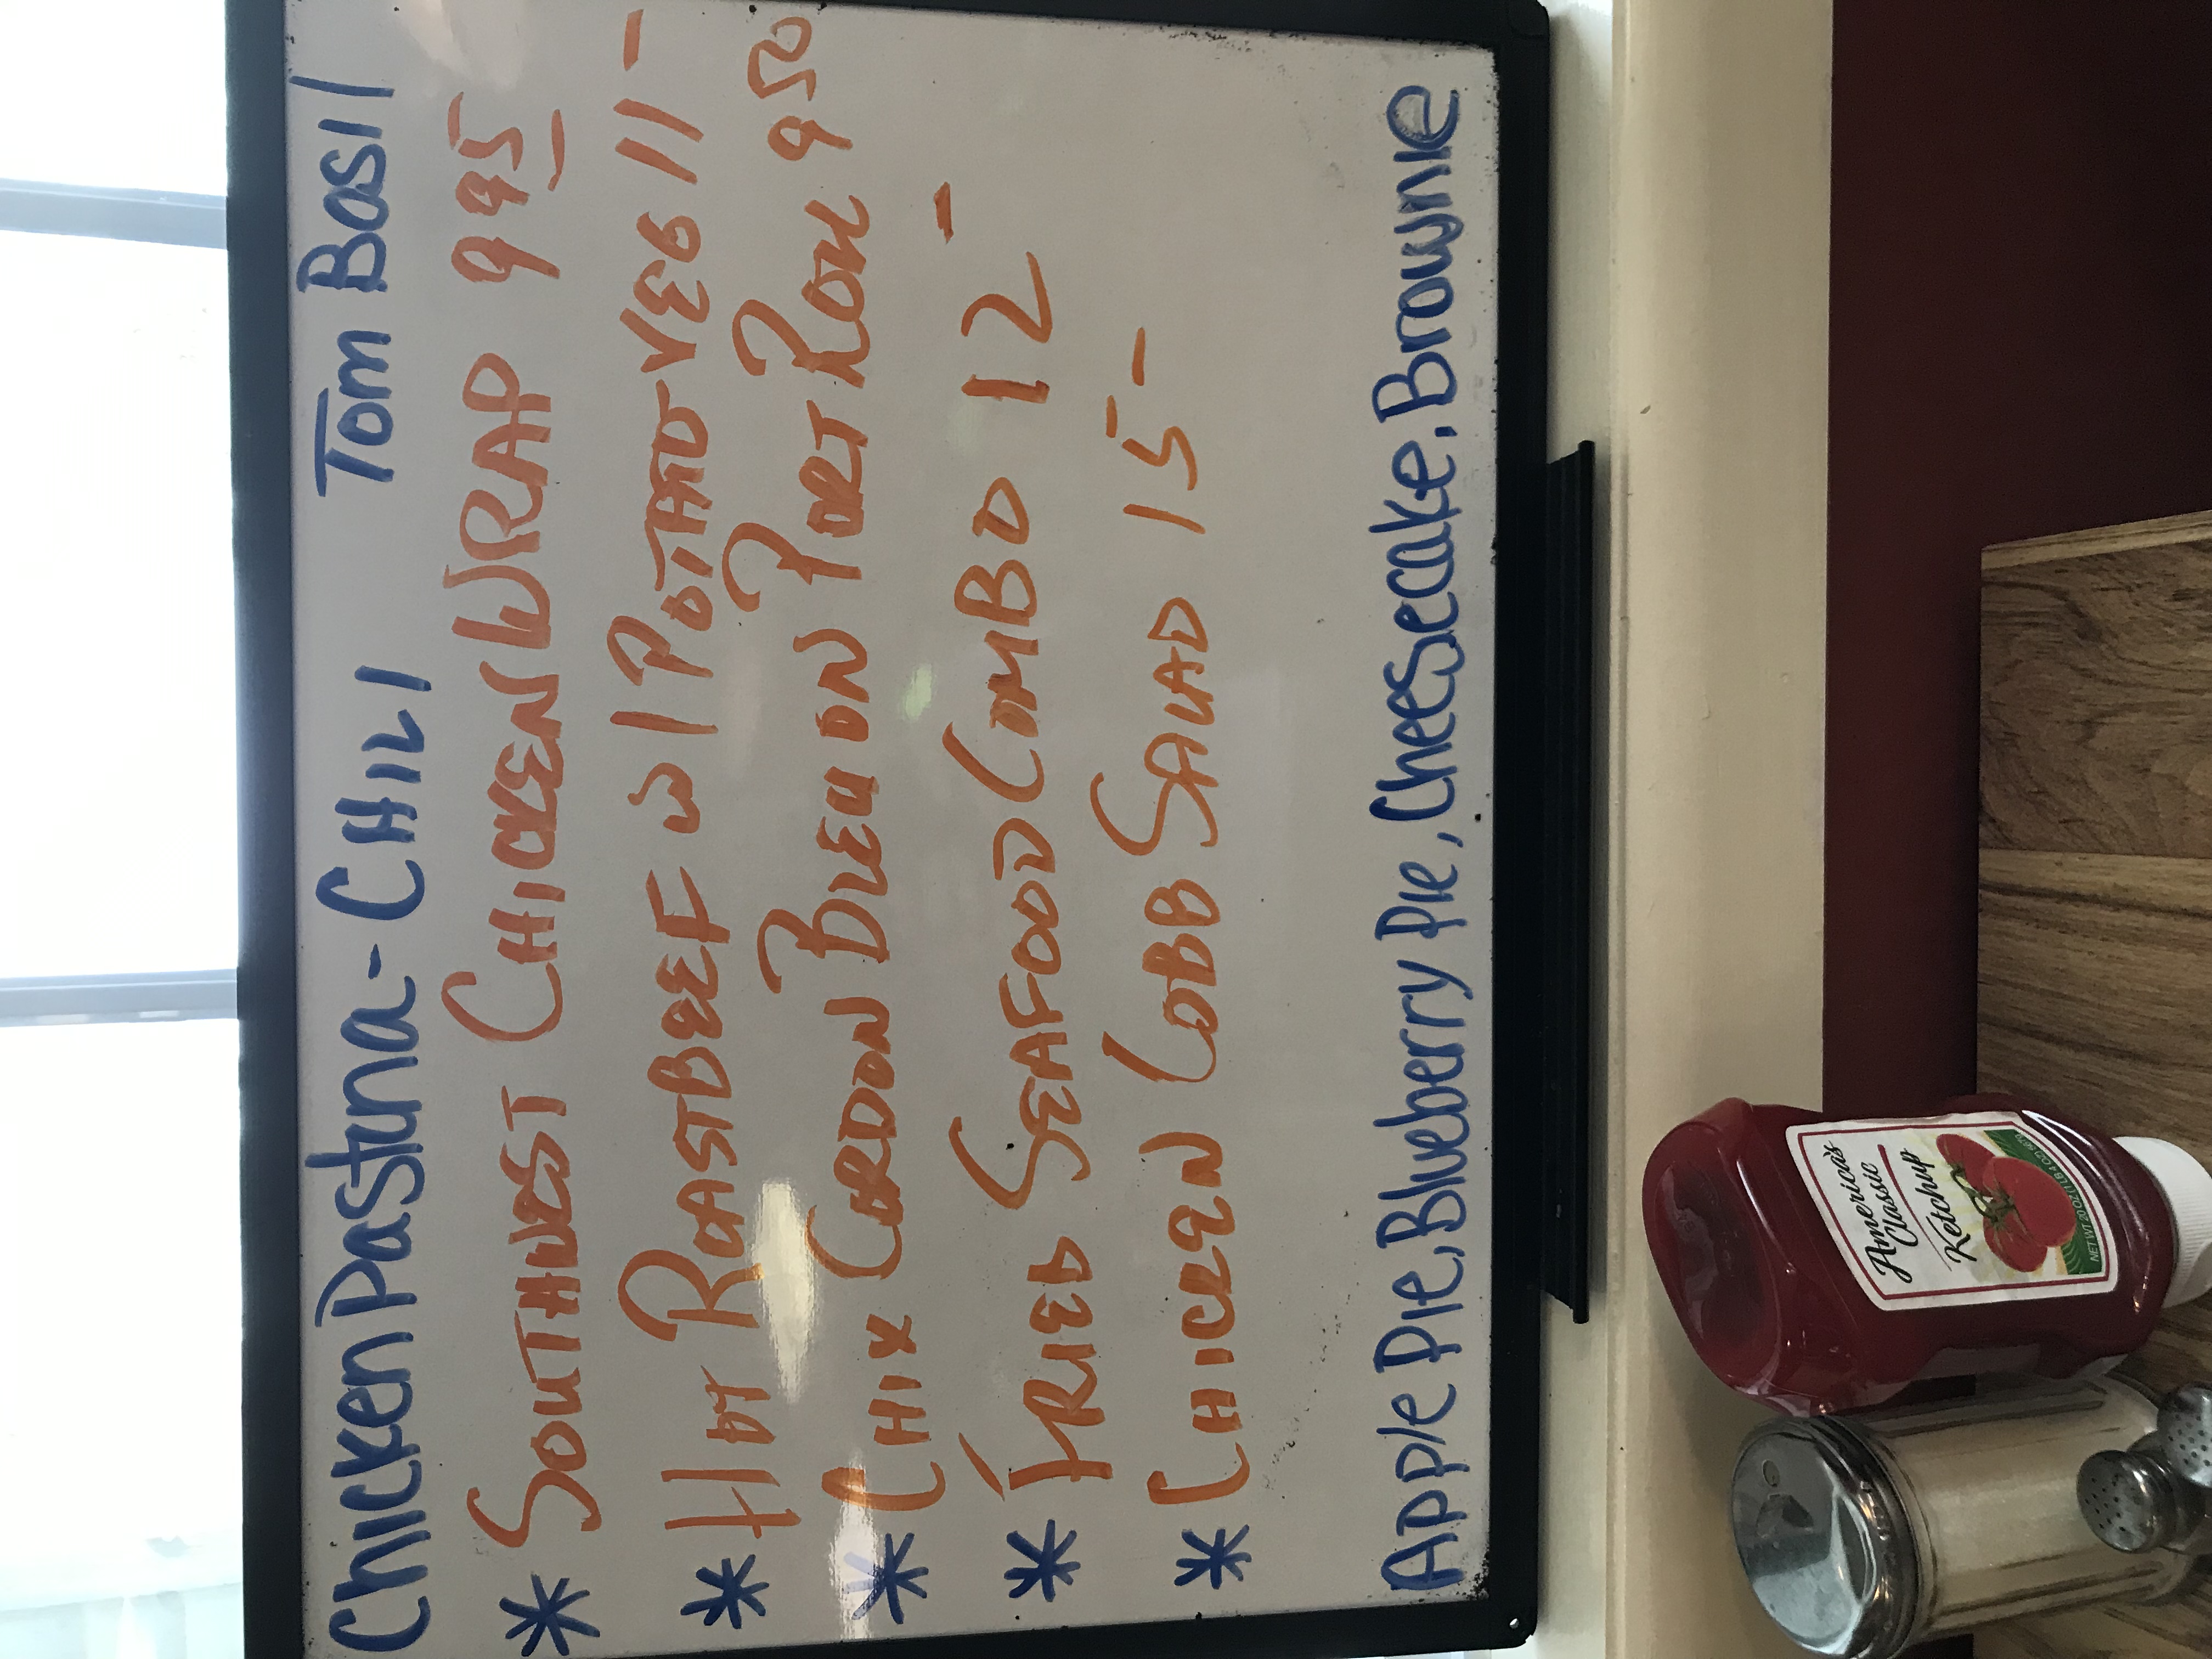 Chicken Pastina - CHILI Tom Basil
* SOUTHWEST CHICKEN WRAP 995
* HOT ROASTBEEF w/ POTATO VEG 11-
* CHIX CORDON BLEU ON PORT ROLL 950
* FRIED SEAFOOD COMBO 12-
* CHICKEN COBB SALAD 15-
Apple Pie, Blueberry Pie, Cheesecake, Brownie
America's
Classic
Ketchup